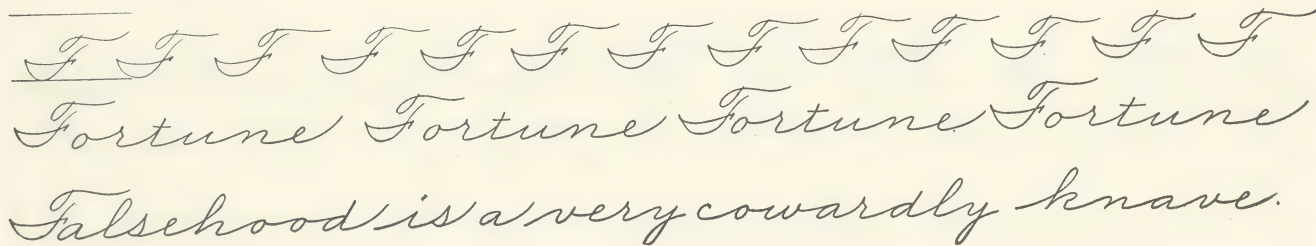 F F F F F F F F F F F F F
Fortune Fortune Fortune Fortune
Falsehood is a very cowardly knave.